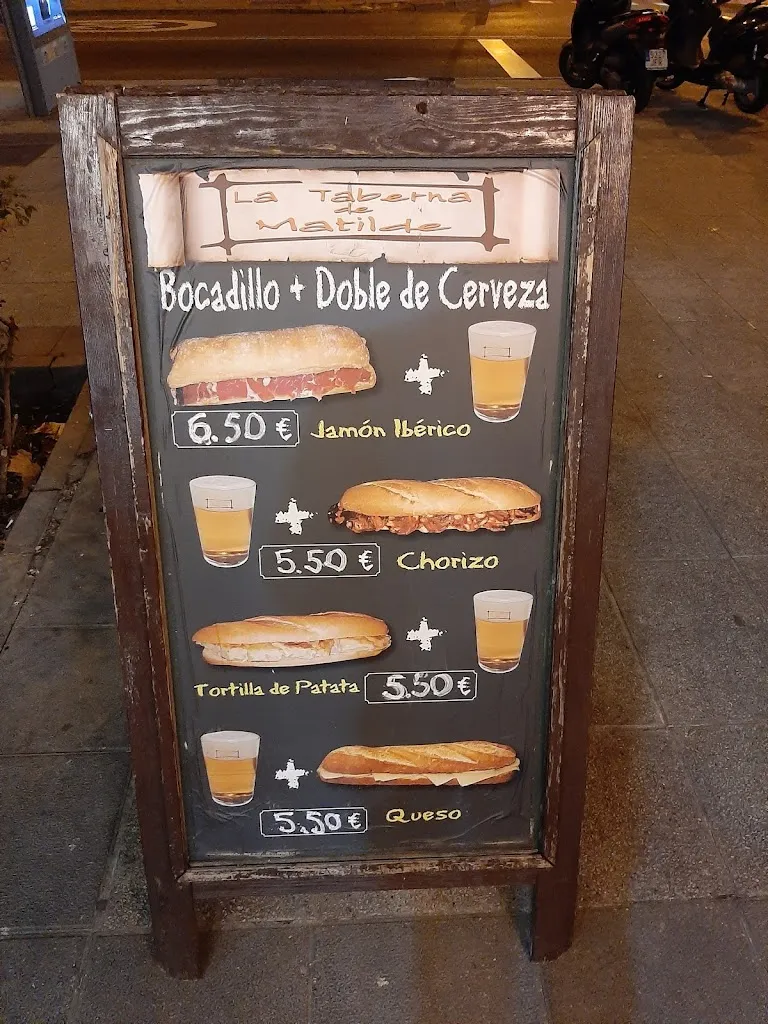 La Taberna
de
Matilde
Bocadillo + Doble de Cerveza
6.50 € Jamón Ibérico
5.50 € Chorizo
Tortilla de Patata 5.50 €
5.50 € Queso